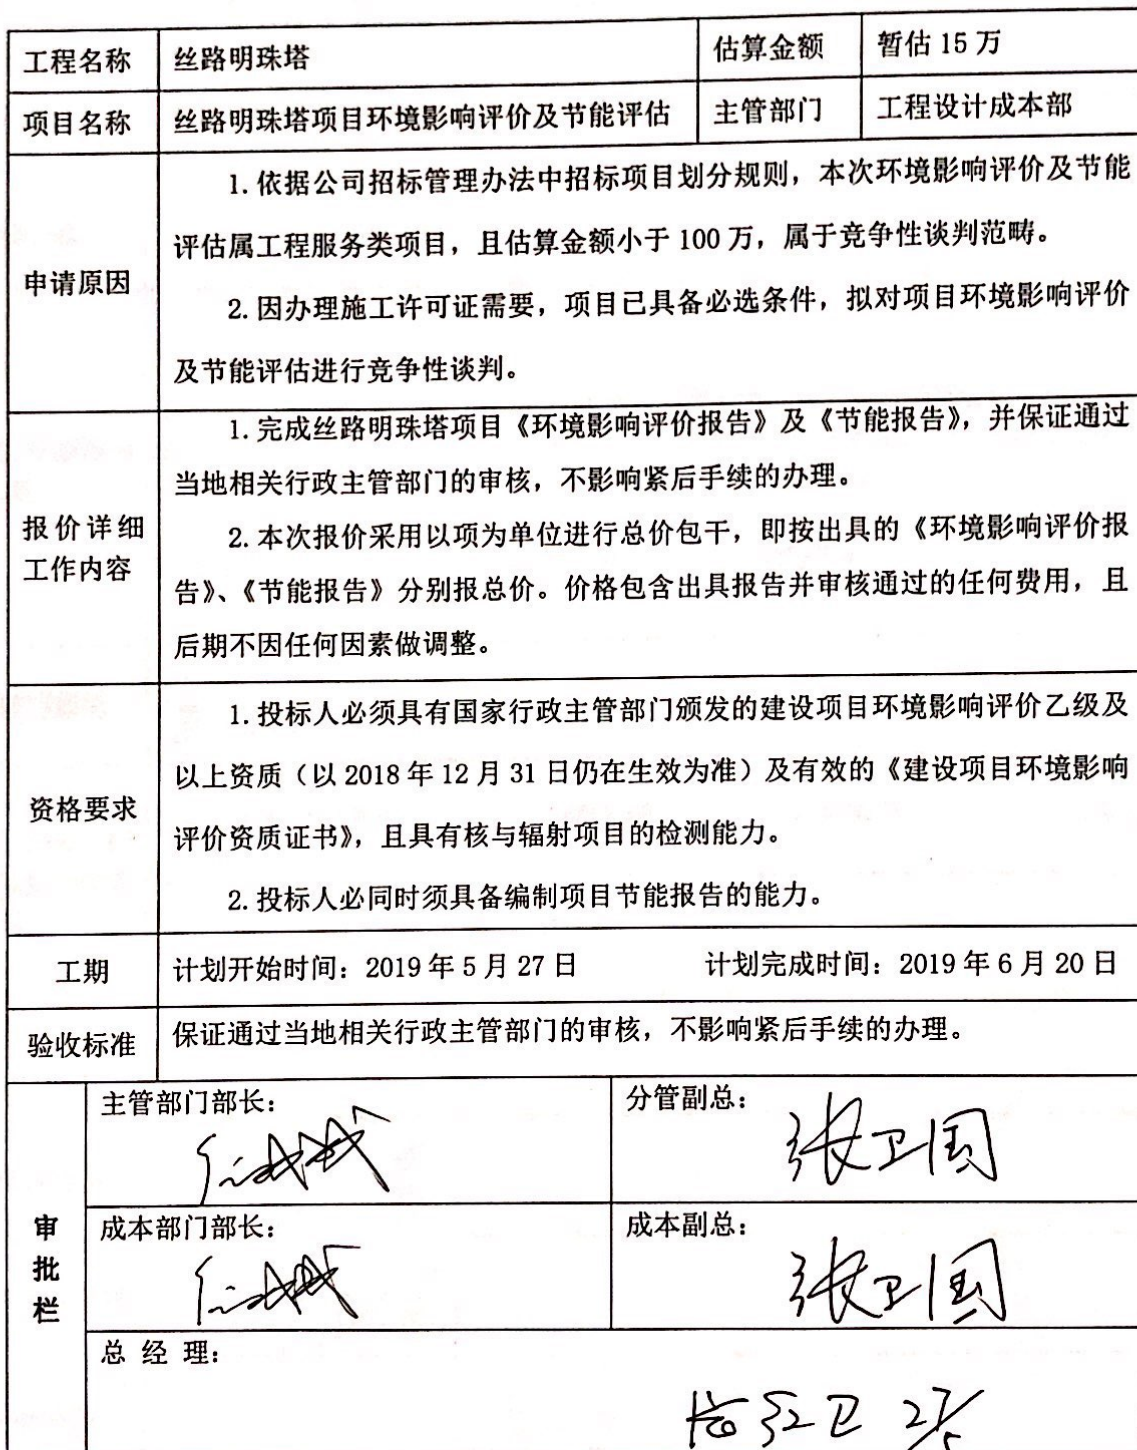 工程名称 丝路明珠塔 估算金额 暂估 15 万
项目名称 丝路明珠塔项目环境影响评价及节能评估 主管部门 工程设计成本部
申请原因
1.依据公司招标管理办法中招标项目划分规则，本次环境影响评价及节能
评估属工程服务类项目，且估算金额小于 100 万，属于竞争性谈判范畴。
2.因办理施工许可证需要，项目已具备必选条件，拟对项目环境影响评价
及节能评估进行竞争性谈判。
报价详细
工作内容
1.完成丝路明珠塔项目《环境影响评价报告》及《节能报告》，并保证通过
当地相关行政主管部门的审核，不影响紧后手续的办理。
2.本次报价采用以项为单位进行总价包干，即按出具的《环境影响评价报
告》、《节能报告》分别报总价。价格包含出具报告并审核通过的任何费用，且
后期不因任何因素做调整。
资格要求
1.投标人必须具有国家行政主管部门颁发的建设项目环境影响评价乙级及
以上资质（以 2018 年 12 月 31 日仍在生效为准）及有效的《建设项目环境影响
评价资质证书》，且具有核与辐射项目的检测能力。
2.投标人必同时须具备编制项目节能报告的能力。
工期 计划开始时间：2019 年 5 月 27 日 计划完成时间：2019 年 6 月 20 日
验收标准 保证通过当地相关行政主管部门的审核，不影响紧后手续的办理。
审批栏
主管部门部长：
分管副总：
张卫国
成本部门部长：
成本副总：
张卫国
总 经 理：